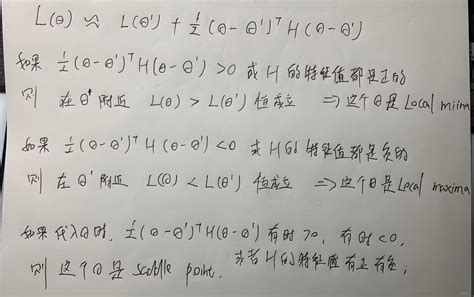 L(θ) ≈ L(θ') + ½(θ-θ')ᵀH(θ-θ')
如果 ½(θ-θ')ᵀH(θ-θ') >0 或 H的特征值都是正的
则 在θ'附近 L(θ) > L(θ') 恒成立 ⇒ 这个θ是Local miima
如果 ½(θ-θ')ᵀH(θ-θ') <0 或H的特征值都是负的
则 在θ'附近 L(θ) < L(θ') 恒成立 ⇒ 这个θ是Local maxima
如果代入θ时, ½(θ-θ')ᵀH(θ-θ') 有时 >0, 有时 <0,
则 这个θ是 saddle point. 或者H的特征值有正有负;